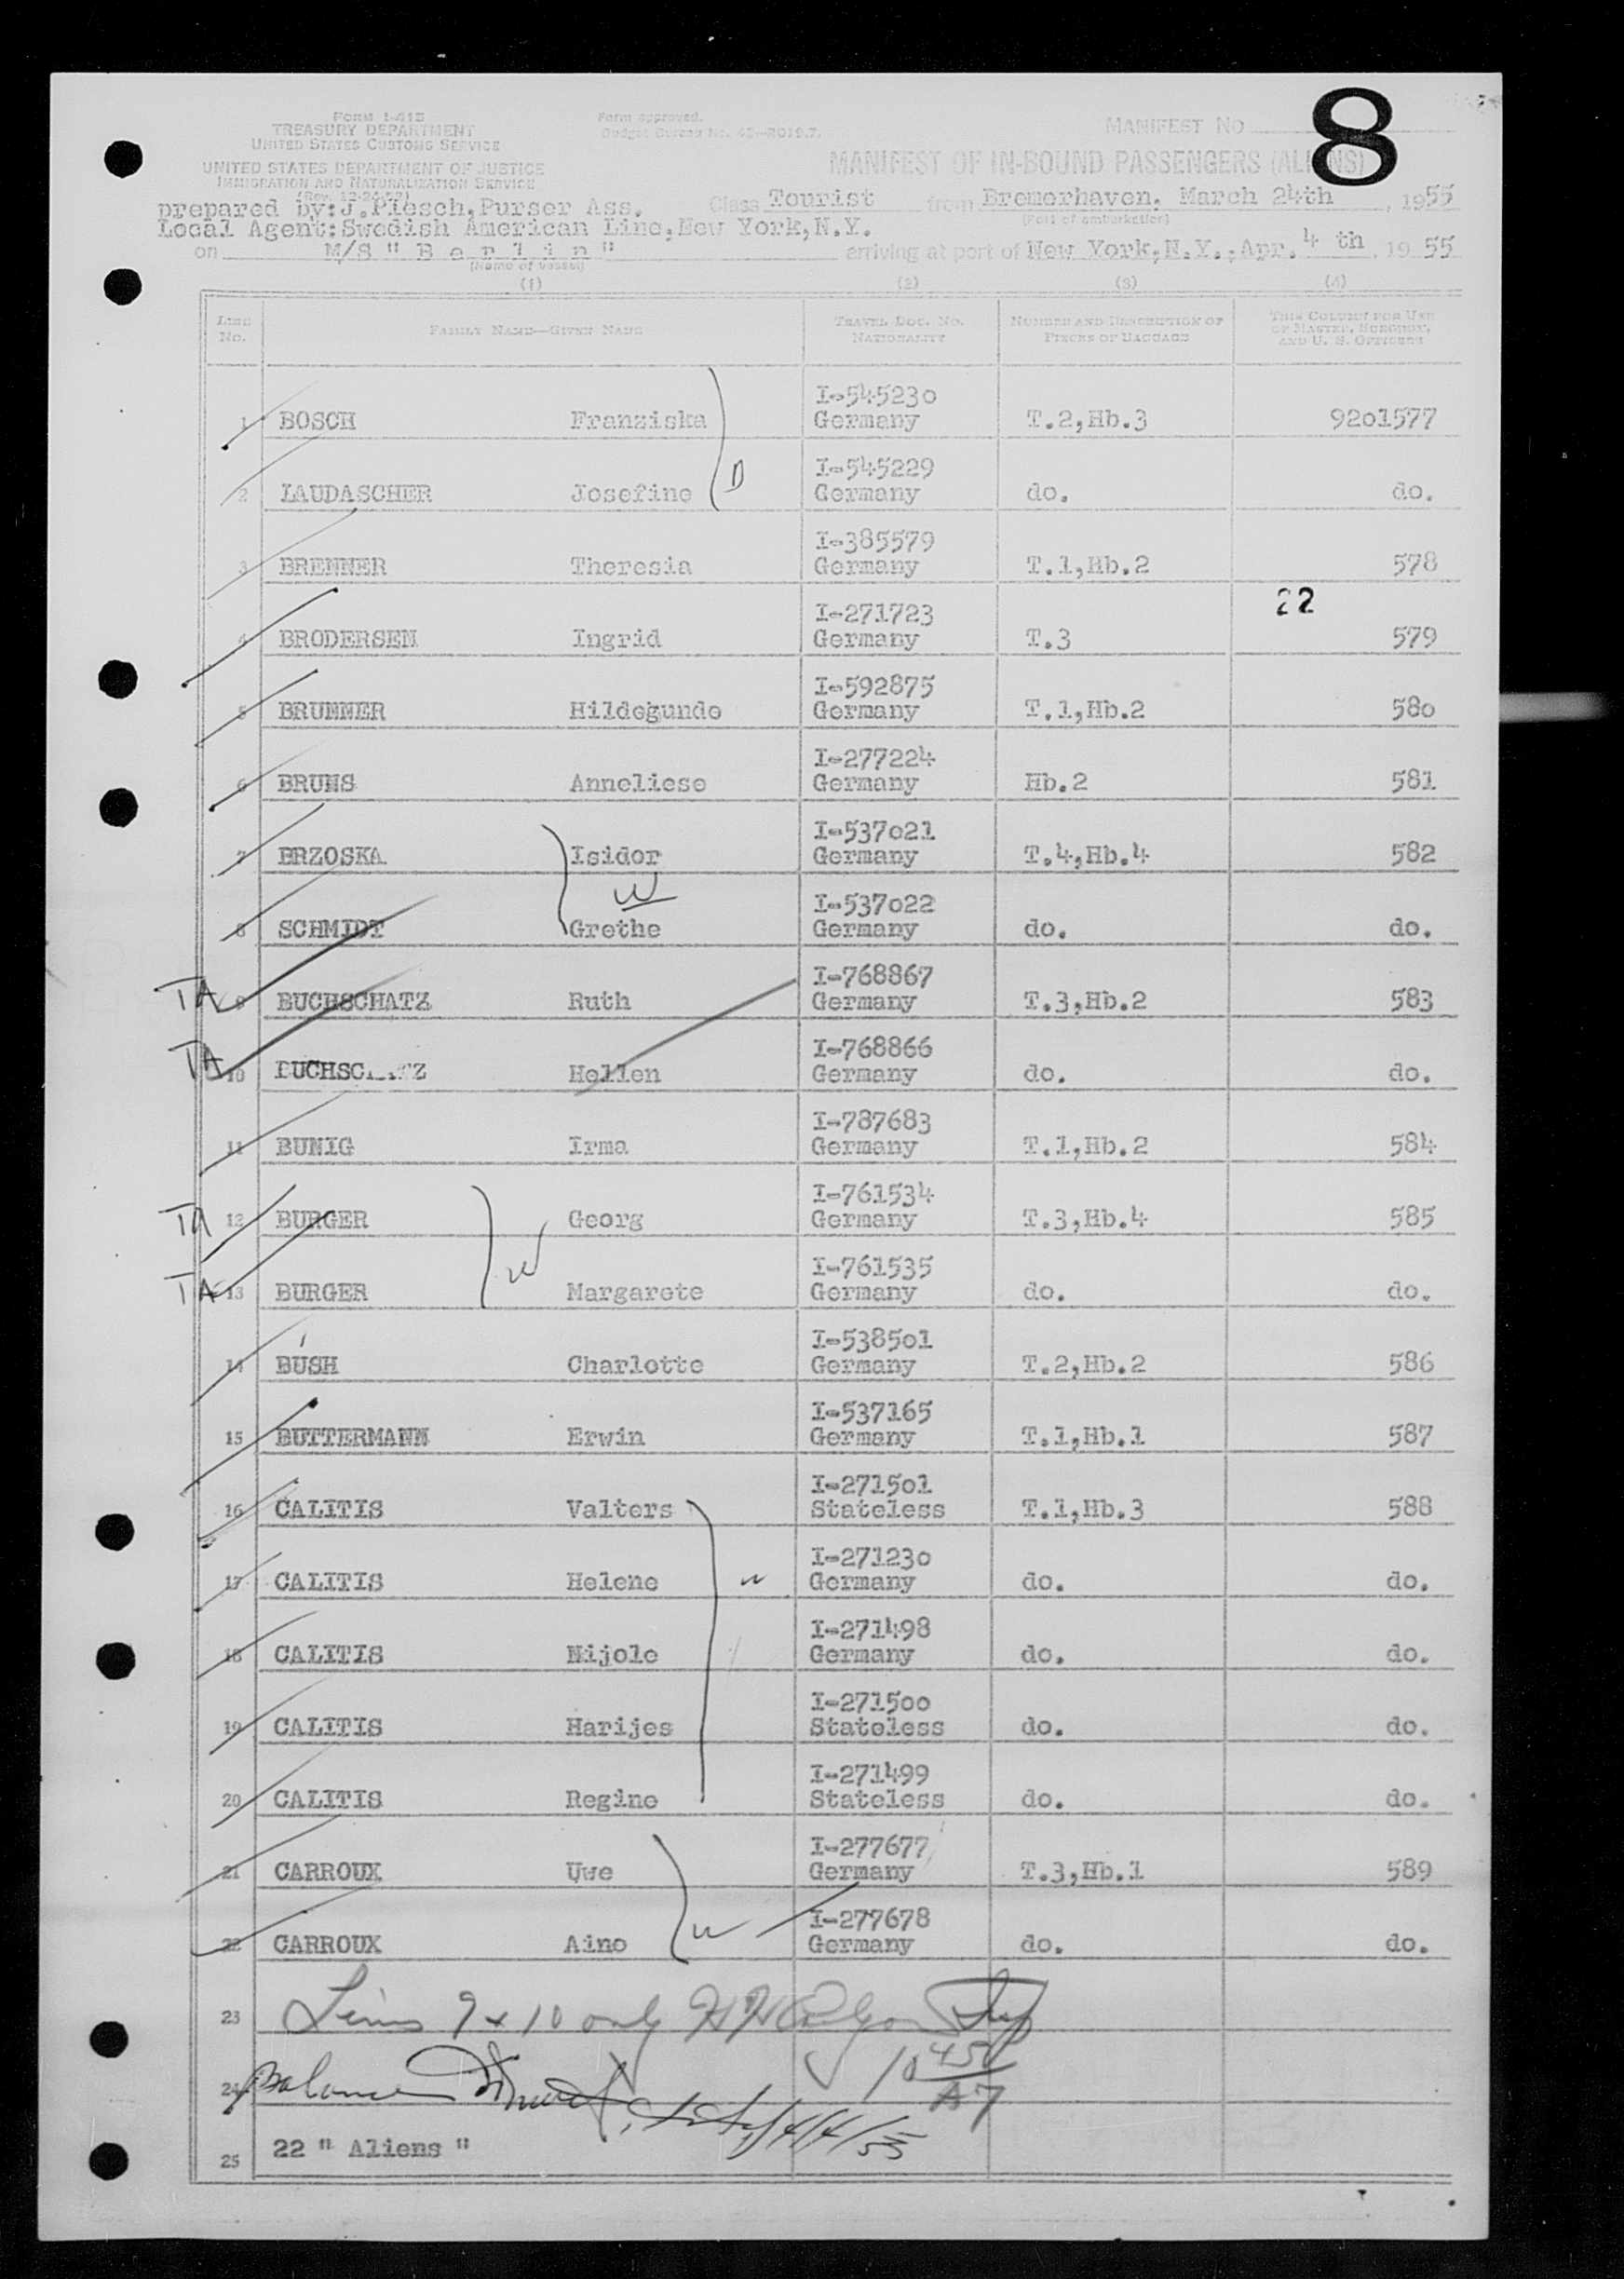 8
Form I-415
TREASURY DEPARTMENT
UNITED STATES CUSTOMS SERVICE
UNITED STATES DEPARTMENT OF JUSTICE
IMMIGRATION AND NATURALIZATION SERVICE
Form approved.
Budget Bureau No. 43-R019.7.
MANIFEST NO
MANIFEST OF IN-BOUND PASSENGERS (ALIENS)
prepared by: J. Plesch, Purser Ass. Class Tourist from Bremerhaven, March 24th, 1955
(Port of embarkation)
Local Agent: Swedish American Line, New York, N.Y.
on M/S " B e r l i n " arriving at port of New York, N.Y., Apr. 4 th, 1955
(Name of vessel)
(1) (2) (3) (4)
LINE NO. FAMILY NAME—GIVEN NAME TRAVEL DOC. NO. NATIONALITY NUMBER AND DESCRIPTION OF PIECES OF BAGGAGE THIS COLUMN FOR USE OF MASTER, SURGEON, AND U. S. OFFICERS
I-545230
1 BOSCH Franziska Germany T.2,Hb.3 9201577
D
I-545229
2 LAUDASCHER Josefine Germany do. do.
I-385579
3 BRENNER Theresia Germany T.1,Hb.2 578
22
I-271723
4 BRODERSEN Ingrid Germany T.3 579
I-592875
5 BRUNNER Hildegunde Germany T.1,Hb.2 580
I-277224
6 BRUNS Anneliese Germany Hb.2 581
I-537021
7 BRZOSKA Isidor Germany T.4,Hb.4 582
W
I-537022
8 SCHMIDT Grethe Germany do. do.
I-768867
TA 9 BUCHSCHATZ Ruth Germany T.3,Hb.2 583
I-768866
TA 10 BUCHSCHATZ Hellen Germany do. do.
I-787683
11 BUNIG Irma Germany T.1,Hb.2 584
I-761534
TA 12 BURGER Georg Germany T.3,Hb.4 585
W
I-761535
TA 13 BURGER Margarete Germany do. do.
I-538501
14 BUSH Charlotte Germany T.2,Hb.2 586
I-537165
15 BUTTERMANN Erwin Germany T.1,Hb.1 587
I-271501
16 CALITIS Valters Stateless T.1,Hb.3 588
I-271230
17 CALITIS Helene W Germany do. do.
I-271498
18 CALITIS Nijole Germany do. do.
I-271500
19 CALITIS Harijes Stateless do. do.
I-271499
20 CALITIS Regine Stateless do. do.
I-277677
21 CARROUX Uwe Germany T.3,Hb.1 589
I-277678
22 CARROUX Aino W Germany do. do.
23 Lines 9 + 10 only
24 Balance 10 450
A7
4/4/55
25 22 " Aliens "